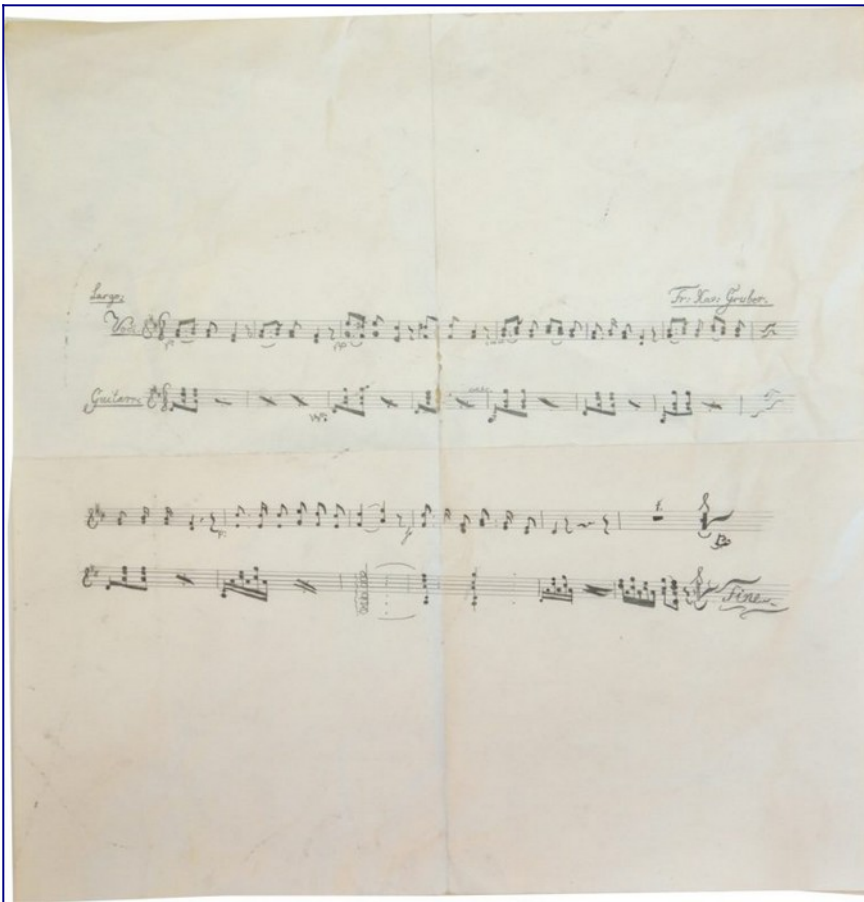 Largo.
Fr: Xav: Gruber.
Voci
Guitarre
pp
Fine